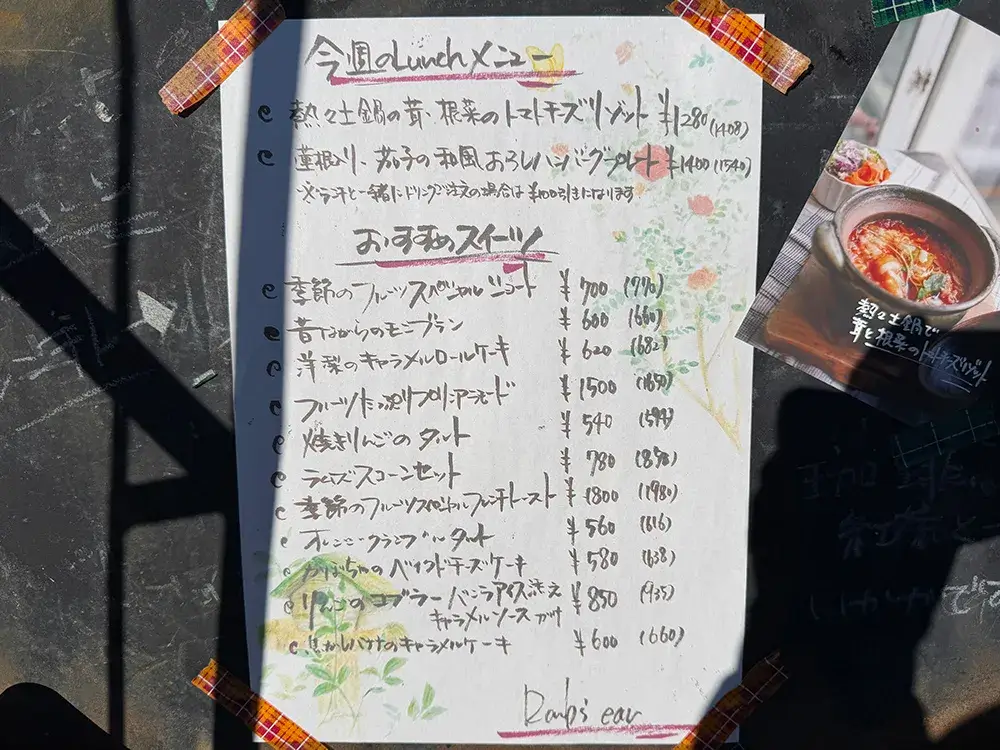 今週のLunchメニュー
熱々土鍋の茸、根菜のトマトチーズリゾット ¥1280(1408)
蓮根入り、茄子の和風おろしハンバーグプレート ¥1400(1540)
※ランチと一緒にドリンクご注文の場合は¥100引きになります
おすすめスイーツ
季節のフルーツスペシャルショート ¥700 (770)
昔ながらのモンブラン ¥600 (660)
洋梨のキャラメルロールケーキ ¥620 (682)
フルーツたっぷりプリンアラモード ¥1500 (1650)
焼きりんごのタルト ¥540 (594)
ラムズスコーンセット ¥780 (858)
季節のフルーツスペシャルフレンチトースト ¥1800 (1980)
オレンジクランブルタルト ¥560 (616)
かぼちゃのベイクドチーズケーキ ¥580 (638)
りんごのコブラーバニラアイス添え ¥850 (935)
キャラメルソースがけ
焦がしバナナのキャラメルケーキ ¥600 (660)
Lamb's ear
熱々土鍋で
茸と根菜のトマトチーズリゾット